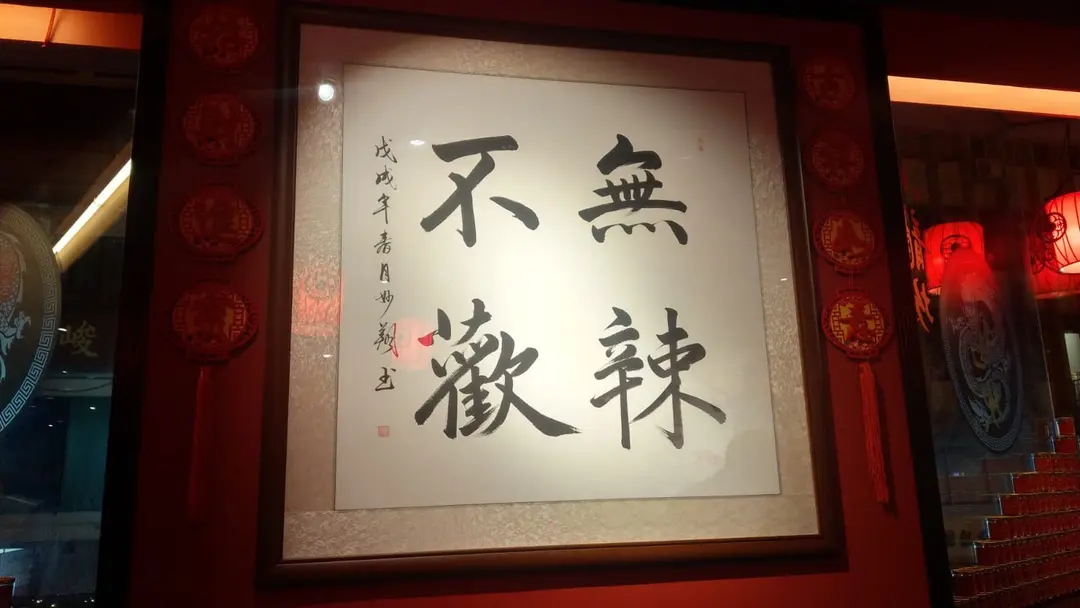 無辣
不歡
戊戌年春月妙书
峻